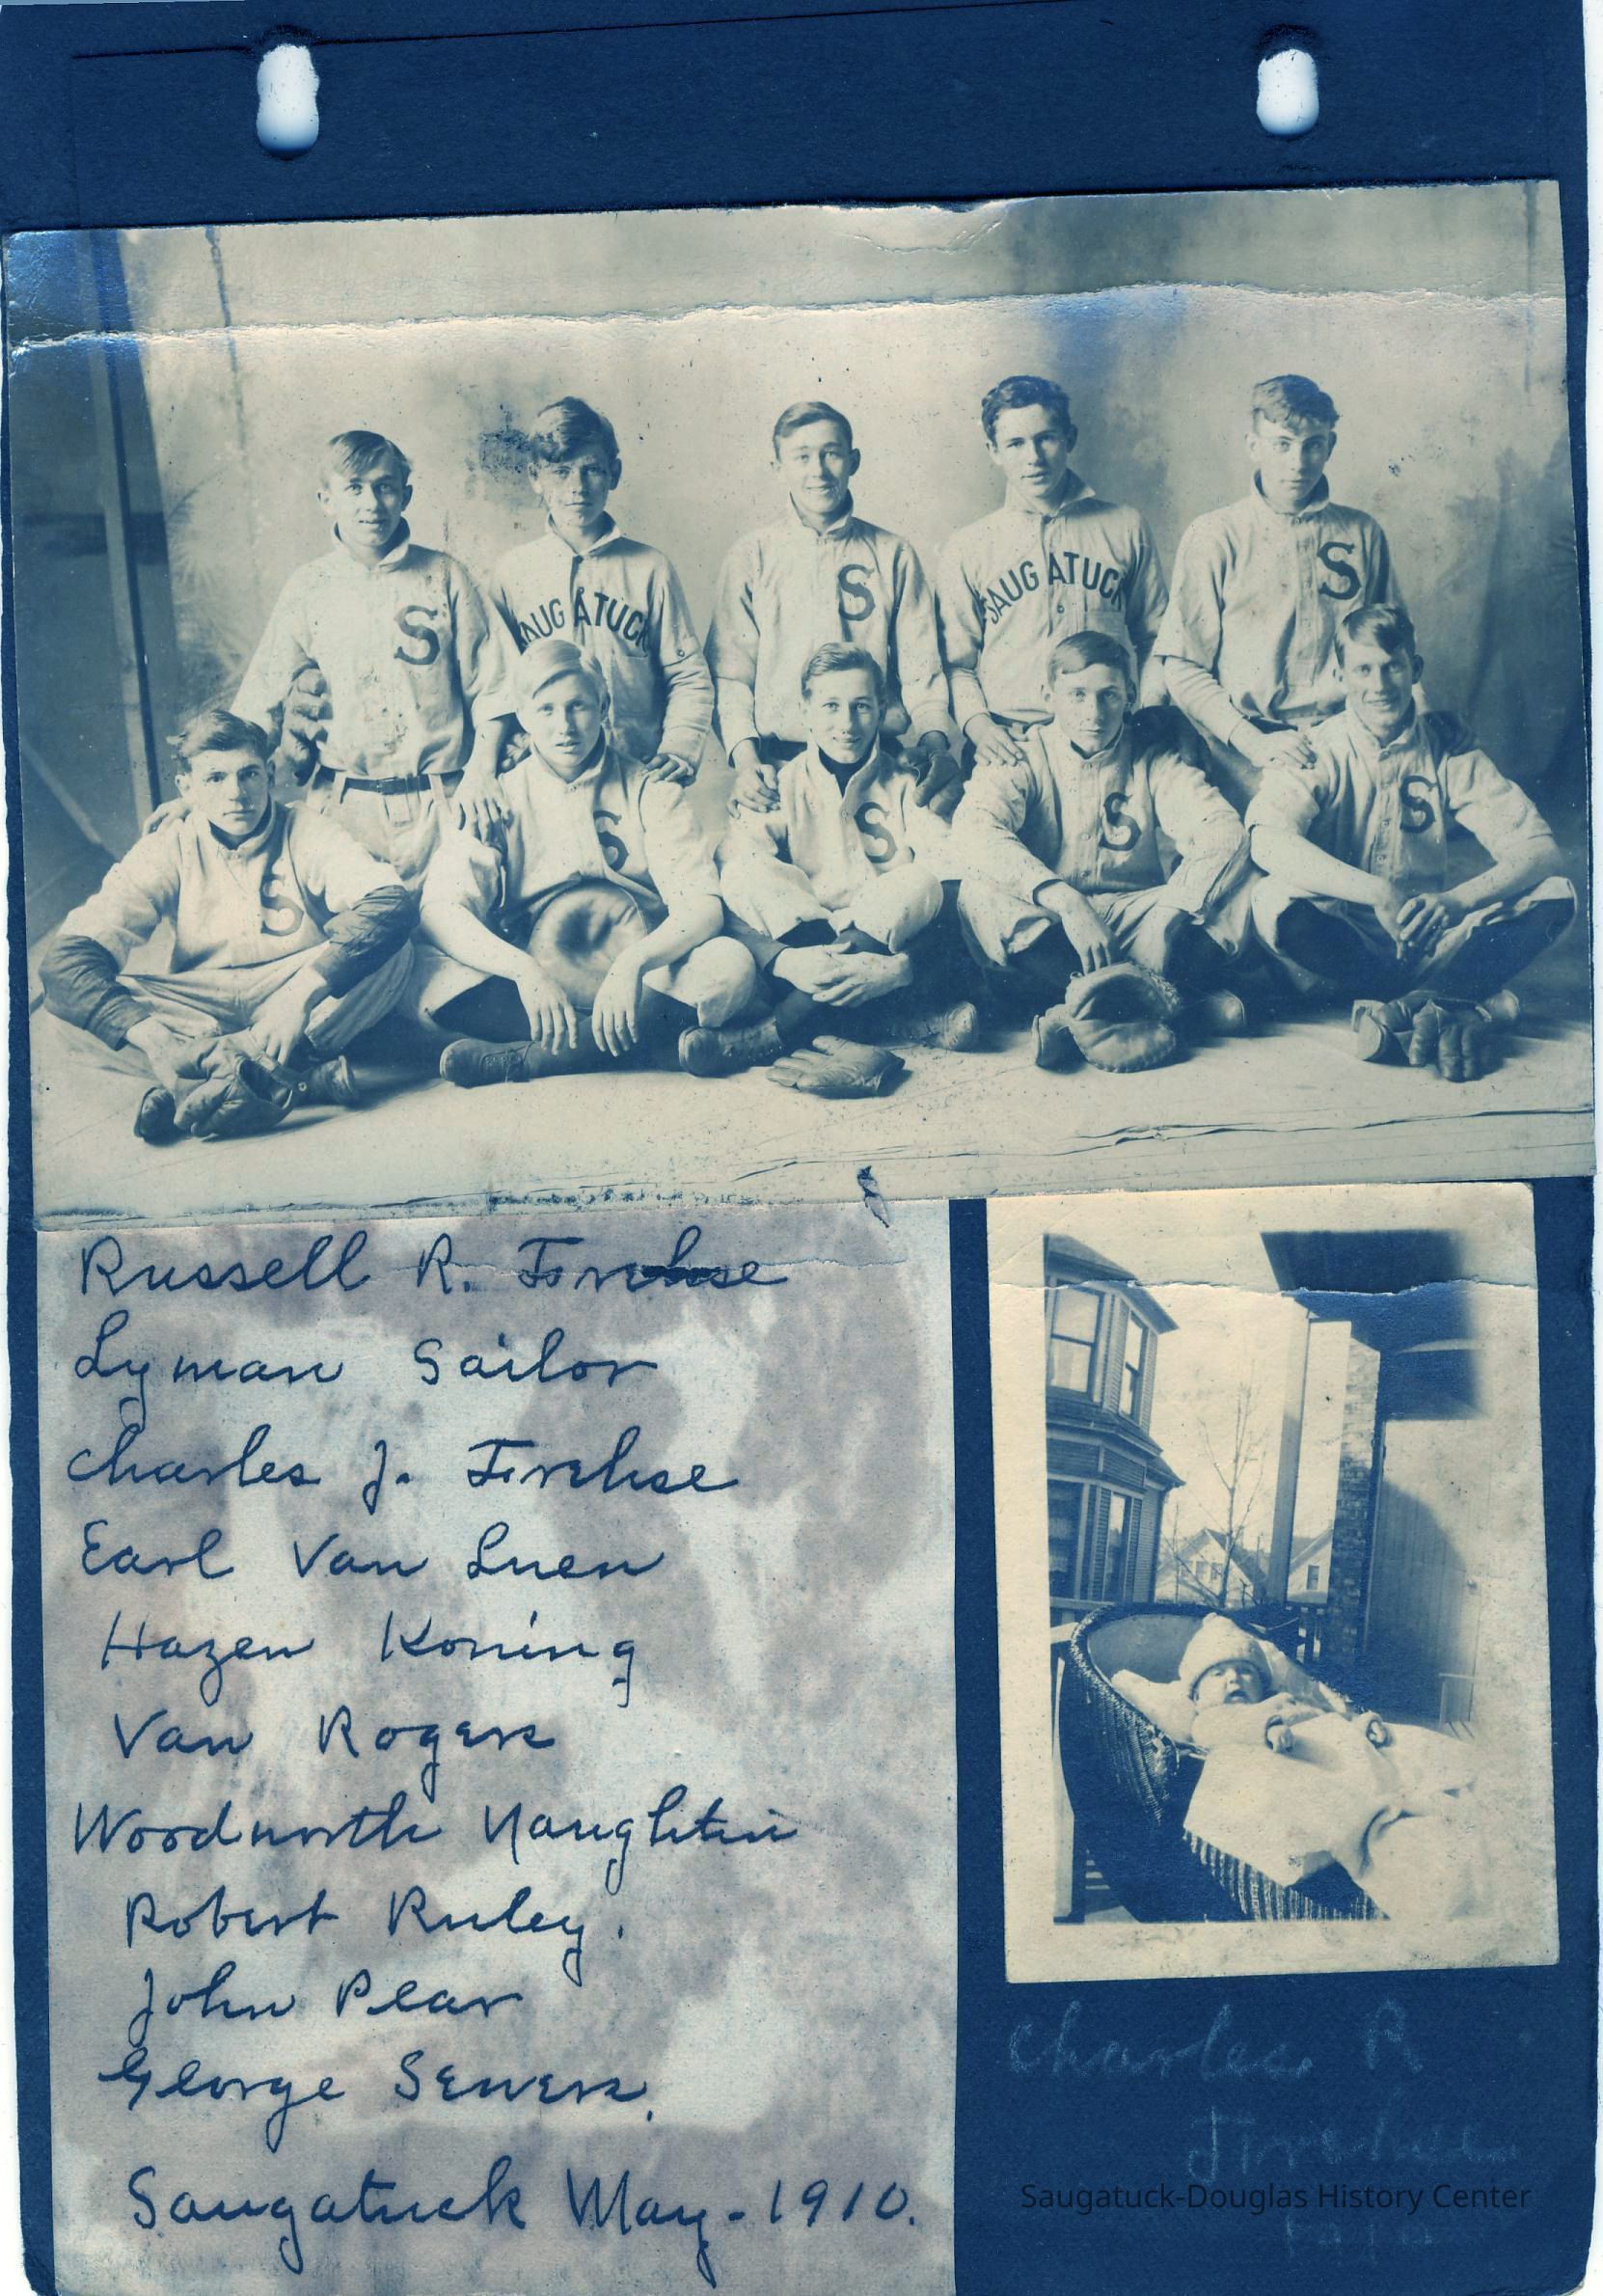 S
AUGATUCK
S
SAUGATUCK
S
S
S
S
S
S
Russell R.
Lyman Sailor
Charles J.
Earl Van Luen
Hazen Koning
Van Rogers
Woodworth Naughtin
Robert Ruley.
John Pear
George Sewers.
Saugatuck May - 1910.
Charles R
Saugatuck-Douglas History Center